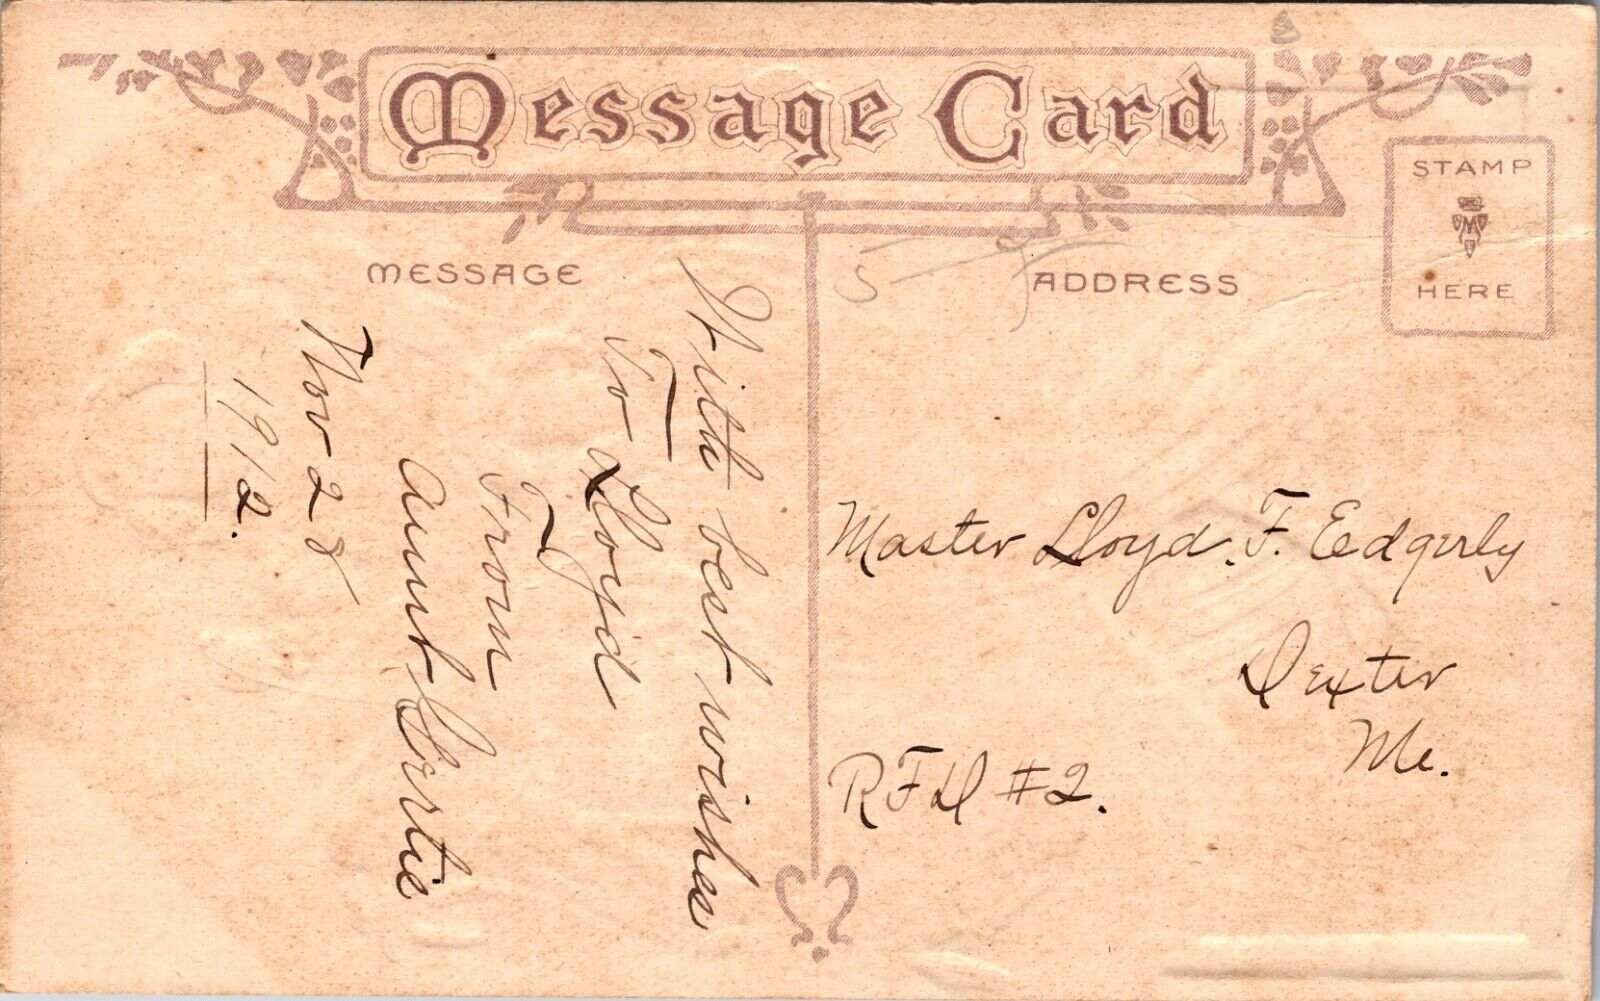 Message Card
STAMP
M
HERE
MESSAGE
ADDRESS
5
With best wishes
To Lloyd
From
Aunt Gertie
Nov 28
1912.
Master Lloyd. F. Eedgerly
Dexter
Me.
RFD #2.